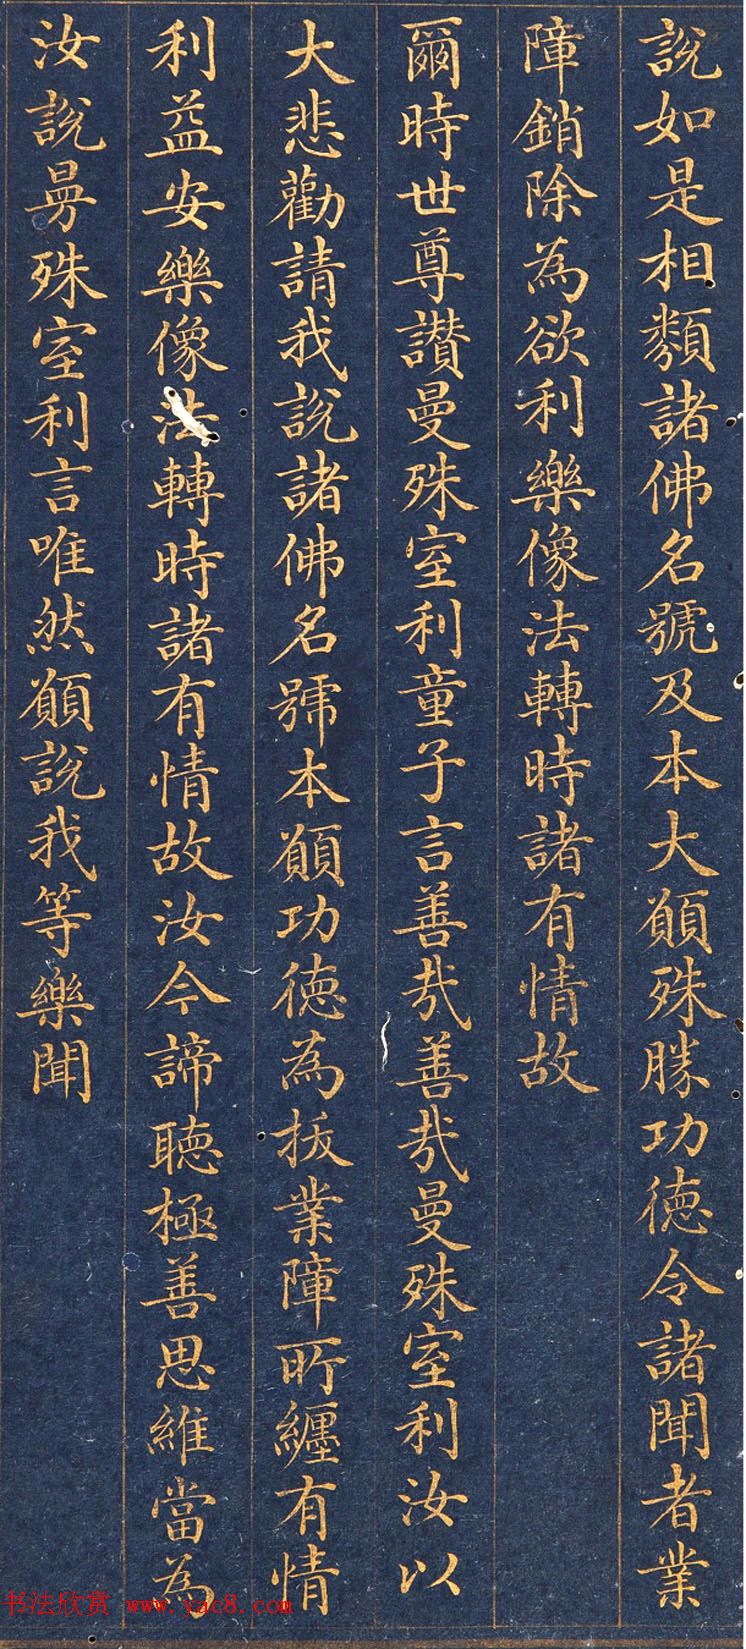 說如是相類諸佛名號及本大願殊勝功德令諸聞者業
障銷除為欲利樂像法轉時諸有情故
爾時世尊讚曼殊室利童子言善哉善哉曼殊室利汝以
大悲勸請我說諸佛名號本願功德為拔業障所纏有情
利益安樂像法轉時諸有情故汝今諦聽極善思維當為
汝說曼殊室利言唯然願說我等樂聞
书法欣赏 www.yac8.com